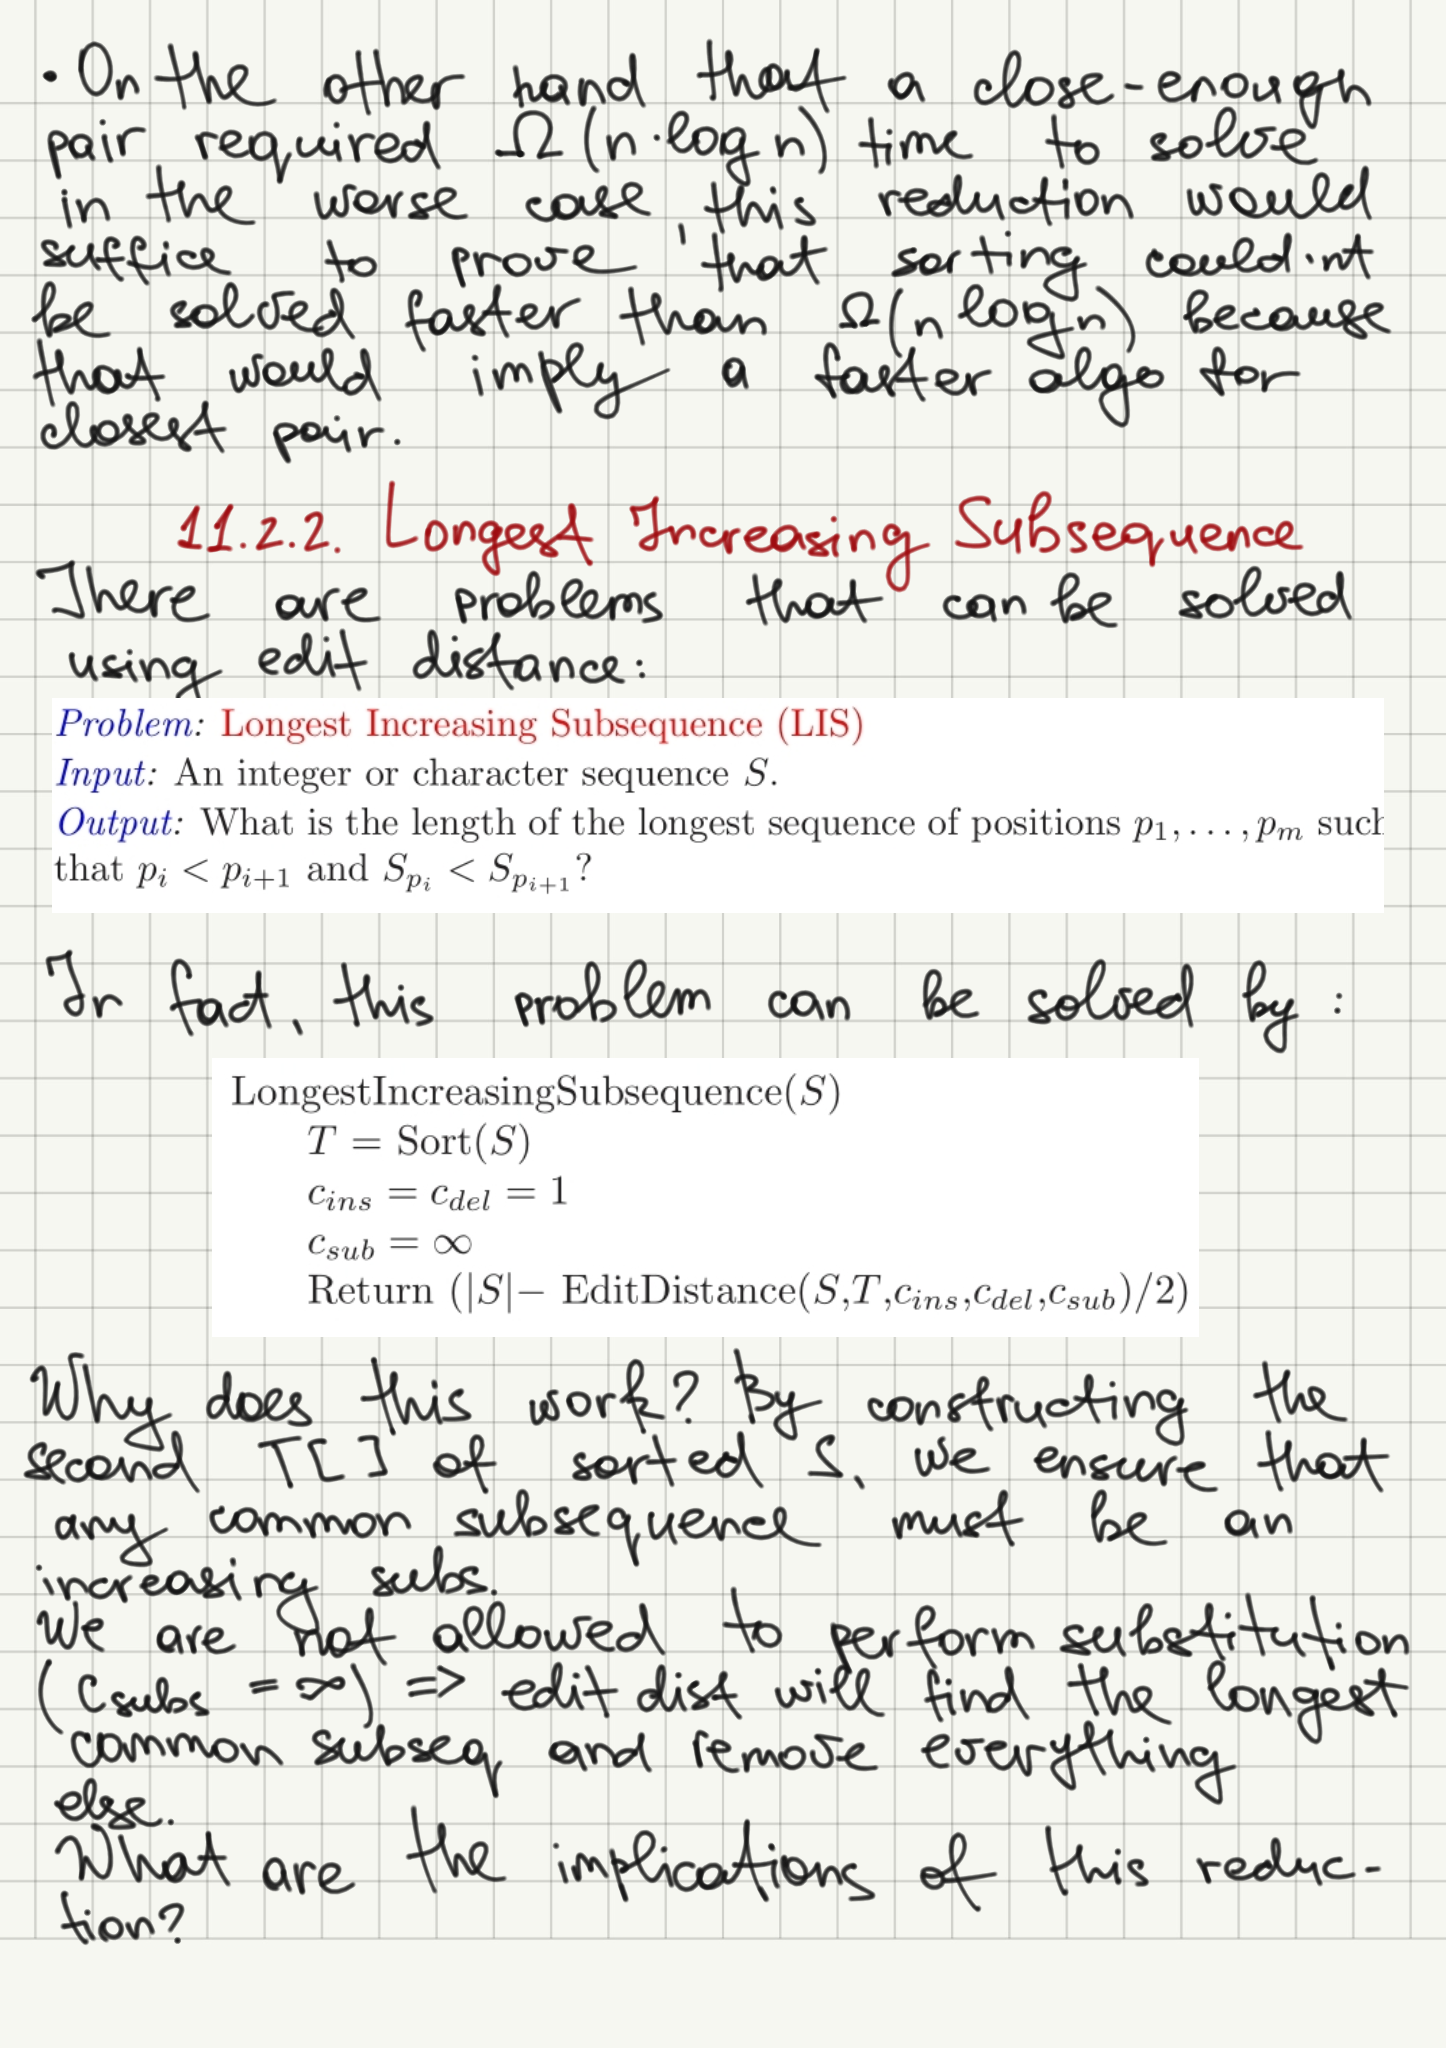 • On the other hand that a close-enough
pair required Ω(n·log n) time to solve
in the worse case, this reduction would
suffice to prove that sorting could'nt
be solved faster than Ω(n log n) because
that would imply a faster algo for
closest pair.
11.2.2. Longest Increasing Subsequence
There are problems that can be solved
using edit distance:
Problem: Longest Increasing Subsequence (LIS)
Input: An integer or character sequence S.
Output: What is the length of the longest sequence of positions p₁, . . . , pₘ such
that pᵢ < pᵢ₊₁ and S_{pᵢ} < S_{pᵢ₊₁}?
In fact, this problem can be solved by:
LongestIncreasingSubsequence(S)
T = Sort(S)
c_{ins} = c_{del} = 1
c_{sub} = ∞
Return (|S|− EditDistance(S,T,c_{ins},c_{del},c_{sub})/2)
Why does this work? By constructing the
second T[ ] of sorted S, we ensure that
any common subsequence must be an
increasing subs.
We are not allowed to perform substitution
(C_{subs} = ∞) => edit dist will find the longest
common subseq and remove everything
else.
What are the implications of this reduc-
tion?